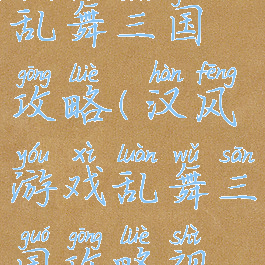 乱舞三国
gōng lüè hàn fēng
攻略(汉风
yóu xì luàn wǔ sān
游戏乱舞三
guó gōng lüè shì
国攻略视